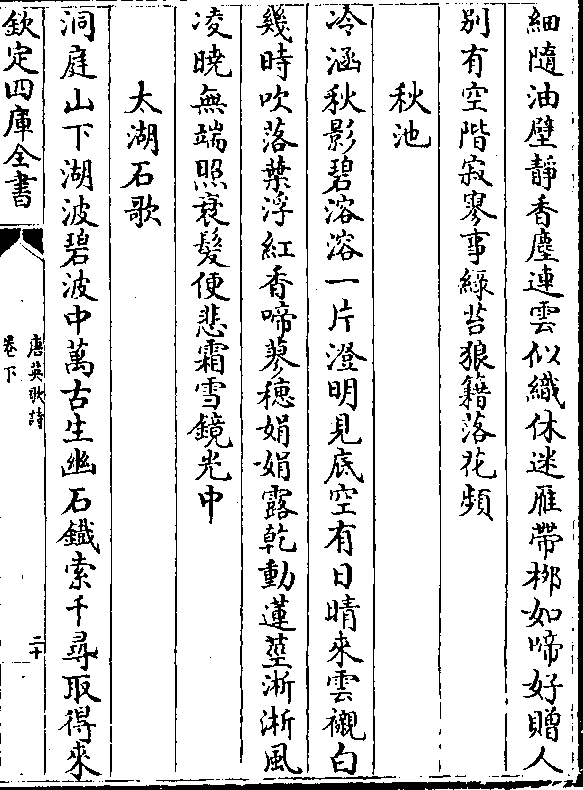 細隨油壁靜香塵連雲似織休迷雁帶栁如啼好贈人
别有空階寂寥事綠苔狼籍落花頻
秋池
冷涵秋影碧溶溶一片澄明見底空有日晴來雲襯白
幾時吹落葉浮紅香啼蓼穗娟娟露乾動蓮莖淅淅風
凌曉無端照衰髪便悲霜雪鏡光中
太湖石歌
洞庭山下湖波碧波中萬古生幽石鐵索千尋取得來
欽定四庫全書
唐英歌詩
卷下
二十